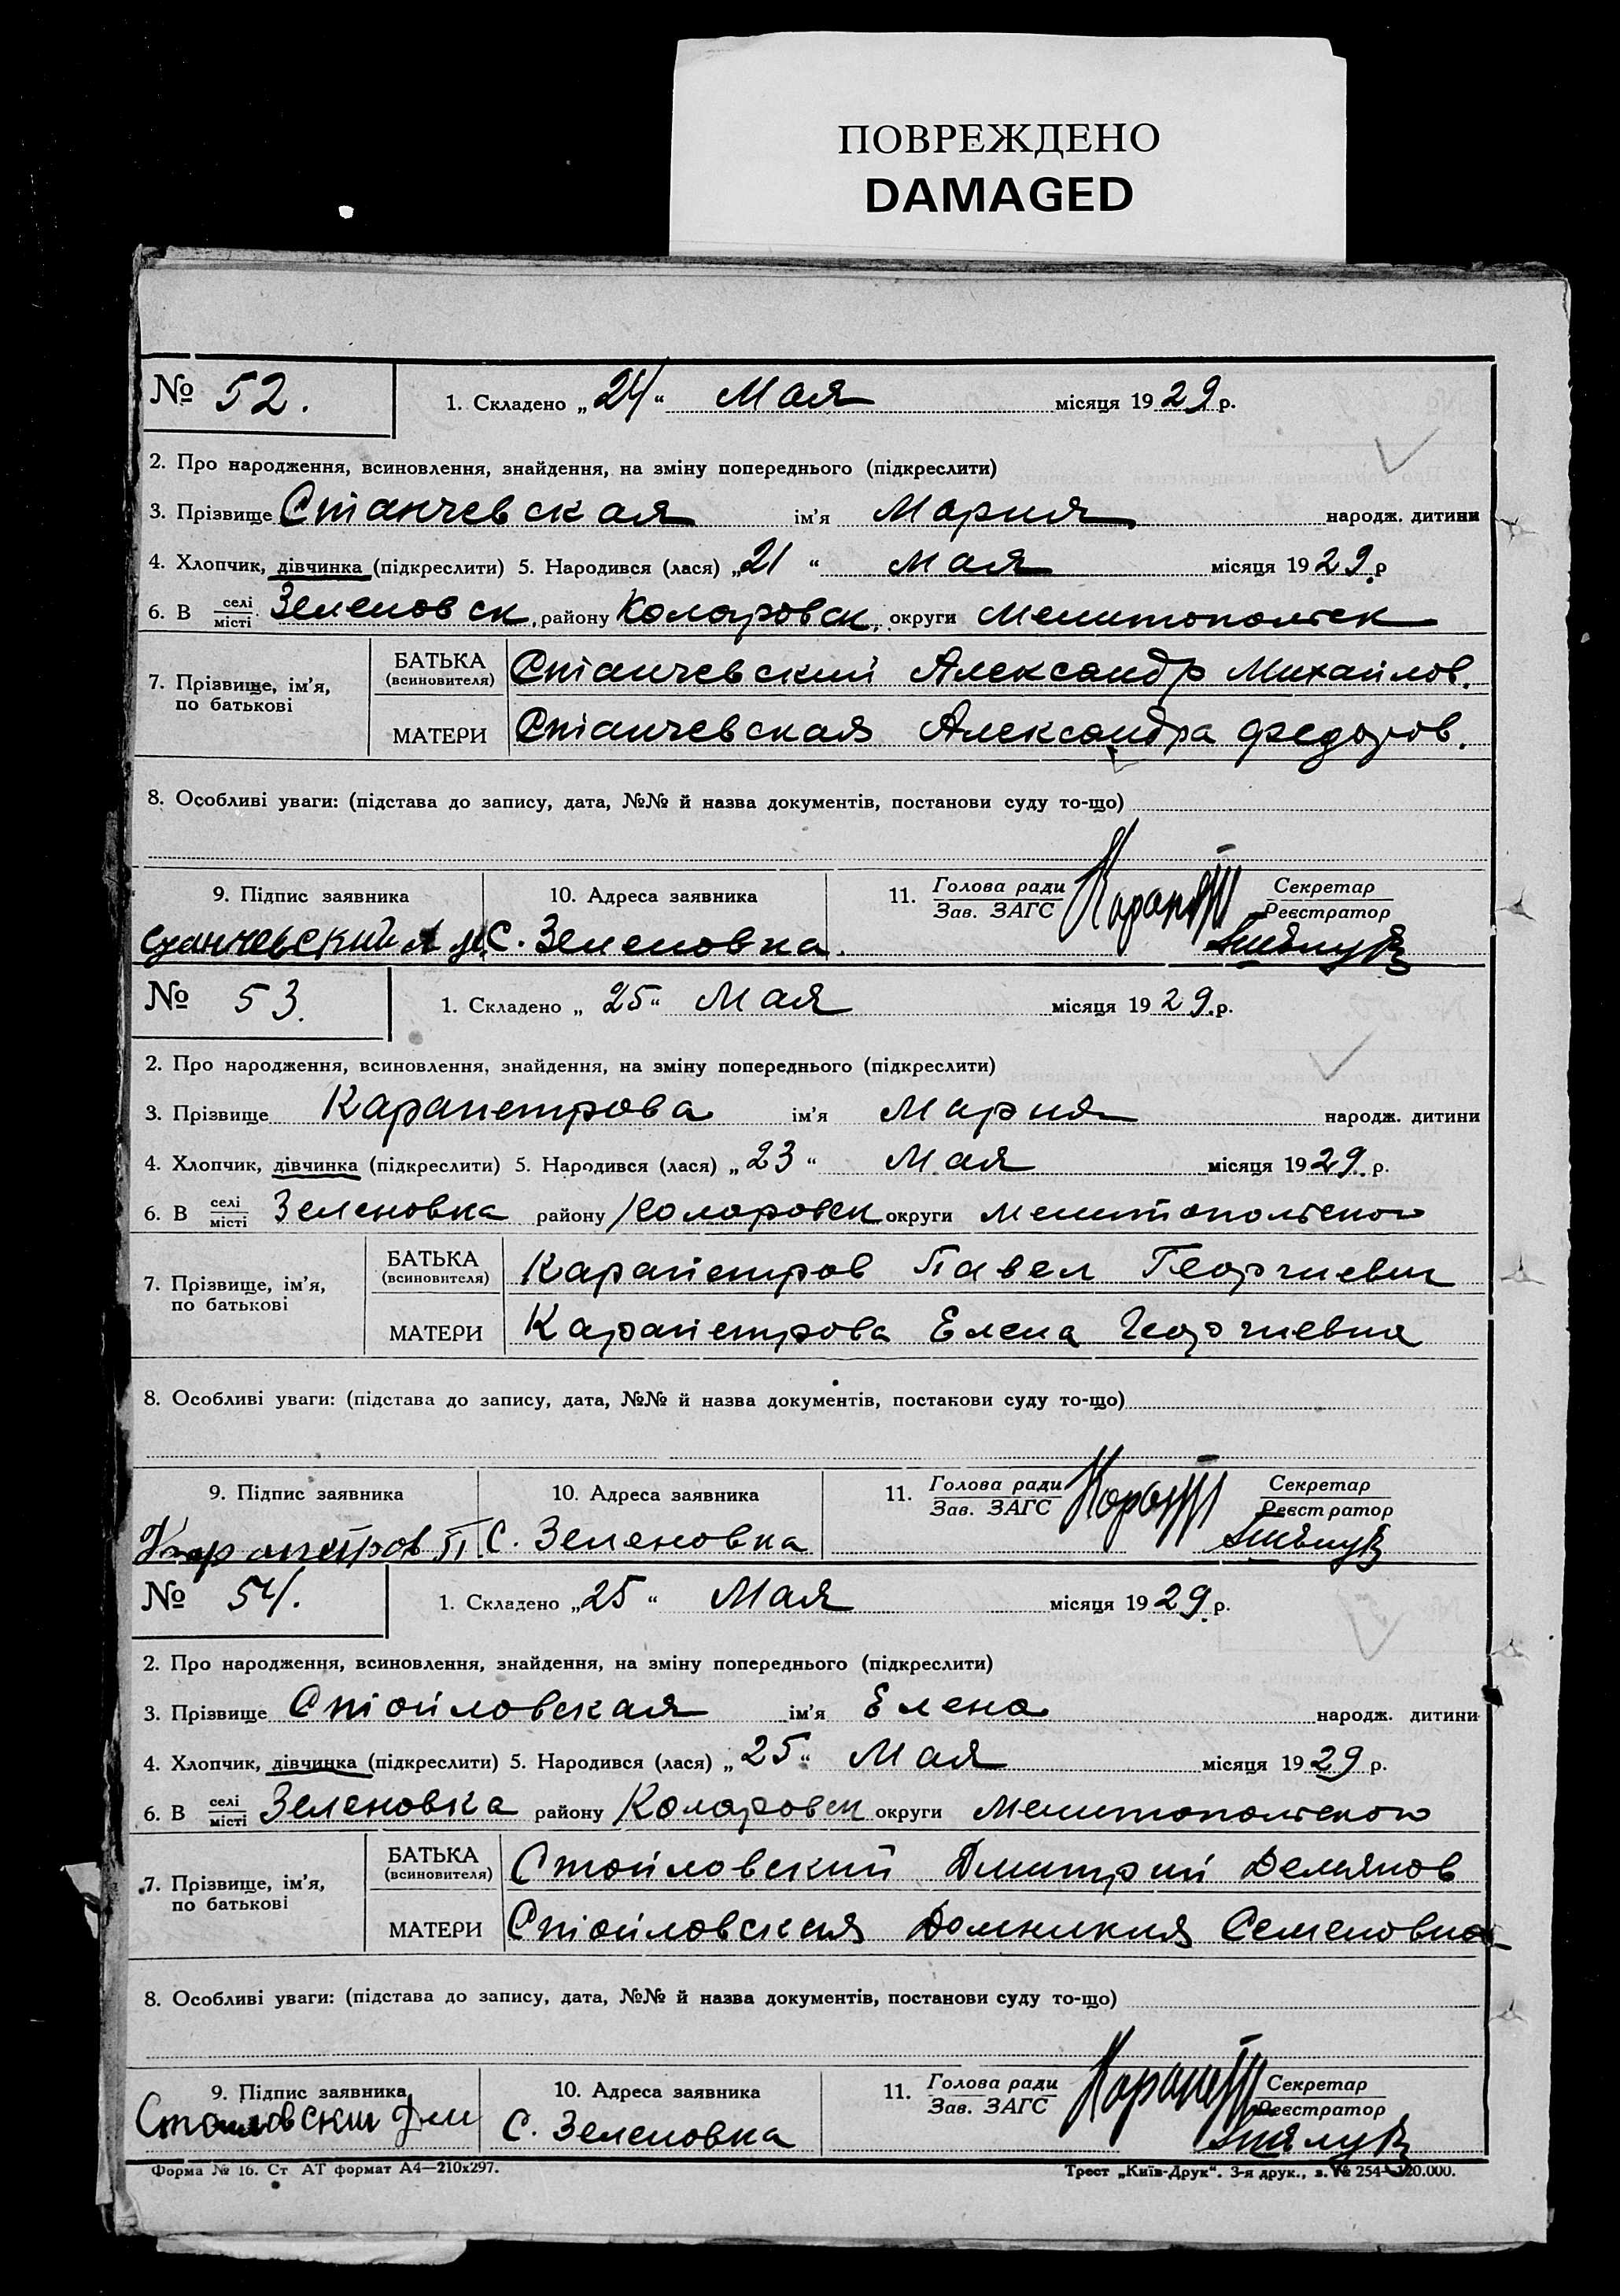 ПОВРЕЖДЕНО
DAMAGED
№ 52. 1. Складено „24“ Мая місяця 1929 р.
2. Про народження, всиновлення, знайдення, на зміну попереднього (підкреслити)
3. Прізвище Станчевская ім’я Мария народж. дитини
4. Хлопчик, дівчинка (підкреслити) 5. Народився (лася) „21“ Мая місяця 1929 р
6. В селі місті Зеленовск. району Коларовск. округи Мелитопольск
7. Прізвище, ім’я, по батькові
БАТЬКА (всиновителя) Станчевский Александр Михайлов.
МАТЕРИ Станчевская Александра Федоров.
8. Особливі уваги: (підстава до запису, дата, №№ й назва документів, постанови суду то-що)
9. Підпис заявника 10. Адреса заявника 11. Голова ради Зав. ЗАГС Секретар Реєстратор
Станчевский А М. С. Зеленовка.
№ 53. 1. Складено „25“ Мая місяця 1929 р.
2. Про народження, всиновлення, знайдення, на зміну попереднього (підкреслити)
3. Прізвище Карапетрова ім’я Мария народж. дитини
4. Хлопчик, дівчинка (підкреслити) 5. Народився (лася) „23“ Мая місяця 1929 р.
6. В селі місті Зеленовка району Коларовск округи Мелитопольского
7. Прізвище, ім’я, по батькові
БАТЬКА (всиновителя) Карапетров Павел Георгиевич
МАТЕРИ Карапетрова Елена Георгиевна
8. Особливі уваги: (підстава до запису, дата, №№ й назва документів, постанови суду то-що)
9. Підпис заявника 10. Адреса заявника 11. Голова ради Зав. ЗАГС Секретар Реєстратор
Карапетров П. С. Зеленовка
№ 54. 1. Складено „25“ Мая місяця 1929 р.
2. Про народження, всиновлення, знайдення, на зміну попереднього (підкреслити)
3. Прізвище Стойловская ім’я Елена народж. дитини
4. Хлопчик, дівчинка (підкреслити) 5. Народився (лася) „25“ Мая місяця 1929 р.
6. В селі місті Зеленовка району Коларовск округи Мелитопольского
7. Прізвище, ім’я, по батькові
БАТЬКА (всиновителя) Стойловский Дмитрий Демянов
МАТЕРИ Стойловская Домникия Семеновна
8. Особливі уваги: (підстава до запису, дата, №№ й назва документів, постанови суду то-що)
9. Підпис заявника 10. Адреса заявника 11. Голова ради Зав. ЗАГС Секретар Реєстратор
Стойловский Дми С. Зеленовка
Форма № 16. Ст АТ формат А4—210х297. Трест „Київ-Друк“. 3-я друк., з. № 254—120.000.